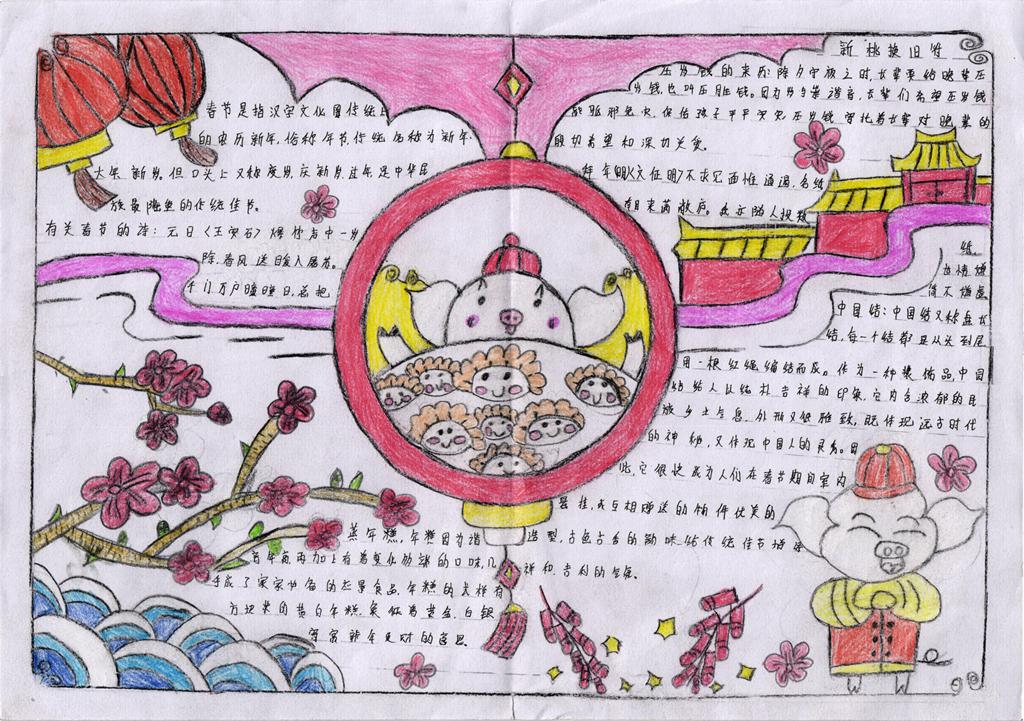 春节是指汉字文化圈传统上
的农历新年,俗称年节传统名称为新年、
大年、新岁,但口头上又称度岁庆新岁过年是中华民
族最隆重的传统佳节。
有关春节的诗:元日《王安石》爆竹声中一岁
除,春风送暖入屠苏。
千门万户曈曈日,总把
新桃换旧符
压岁钱的来历:除夕守液之时,长辈要给晚辈压
岁钱,也叫压胜钱。因为岁与祟谐音,长辈们希望压岁钱
能驱邪免灾,保佑孩子平平安安压岁钱寄托着长辈对晚辈的
殷切希望和深切关爱。
拜年
文征明
不求见面惟通谒,名纸
朝来满敝庐。我亦随人投数
纸,
世情嫌
简不嫌虚
中国结:中国结又称盘长
结,每一个结都是从头到尾
用一根红绳编结而成。作为一种装饰品,中国
结给人以纯朴吉祥的印象,它内含浓郁的民
族乡土气息,外形又很雅致,既体现远古时代
的神秘,又体现中国人的灵秀。因
此,它很快成为人们在春节期间室内
悬挂,或互相赠送的饰件优美的
造型,古色古香的韵味给传统佳节增添
祥和、吉利的气象。
蒸年糕,年糕因为谐音
年高再加上有着变化多端的口味,几
乎成了家家必备的应景食品,年糕的式样有
方块状的黄白年糕,象征着黄金、白银
寄寓新年发财的意思